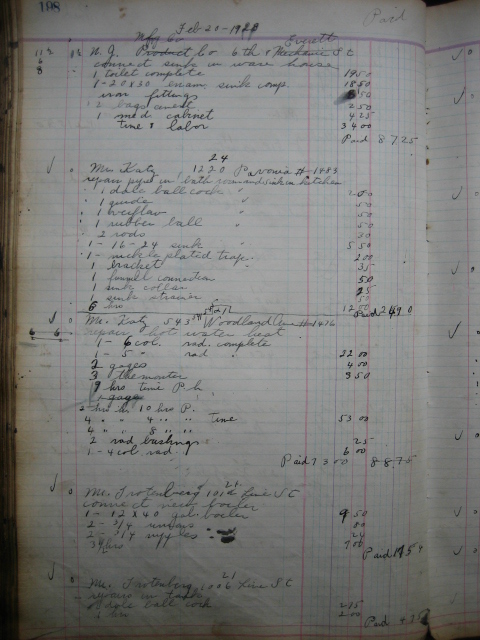 198
Feb-20-1928
Paid
Mfg Co Everett
N. J. Product Co 6th & Mechanic St
connect sink in ware house
1 toilet complete 19 50
1 - 20 x 30 enam. sink comp. 18 50
iron fittings
2 bags cement 2 50
1 med cabinet 4 25
time & labor 34 00
Paid 87 25
24
Mrs Katz 1220 Pavonia # 1483
repair pipe in bath room and sink in kitchen
1 dole ball cock "
1 guide " 50
1 overflow " 50
1 rubber ball " 50
2 rods
1 - 16 - 24 sink 5 50
1 - nickle plated trap 2 00
1 bracket 35
1 funnel connection 50
1 sink collar 25
1 sink strainer
6 hrs 12 00 Paid 24 90
Mr. Katz 543 Woodland Ave # 1476
6 6 repair hot water heat
1 - 6 col. rad. complete
1 - 5 " rad 22 00
2 gages 4 00
3 themomter 3 50
9 hrs time P. h.
1 gage
2 hrs h. 10 hrs P.
4 " " 4 " " time 53 00
4 " " 8 " "
2 rad bushings 25
1 - 4 col rad. 6 00
Paid 73 00 88 75
21
Mr. Trotenberg 1012 Line St
connect new boiler
1 - 12 x 40 gal. boiler 9 50
2 - 3/4 unions 80
2 - 3/4 nipples 24
3 1/2 hrs 7 00
Paid
21
Mr. Trotenberg 1006 Line St
repairs in tank
dole ball cock
1 hrs 2 00
Paid